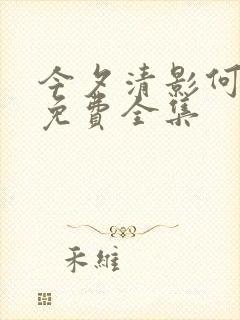 今夕清影何
免費全集
禾維